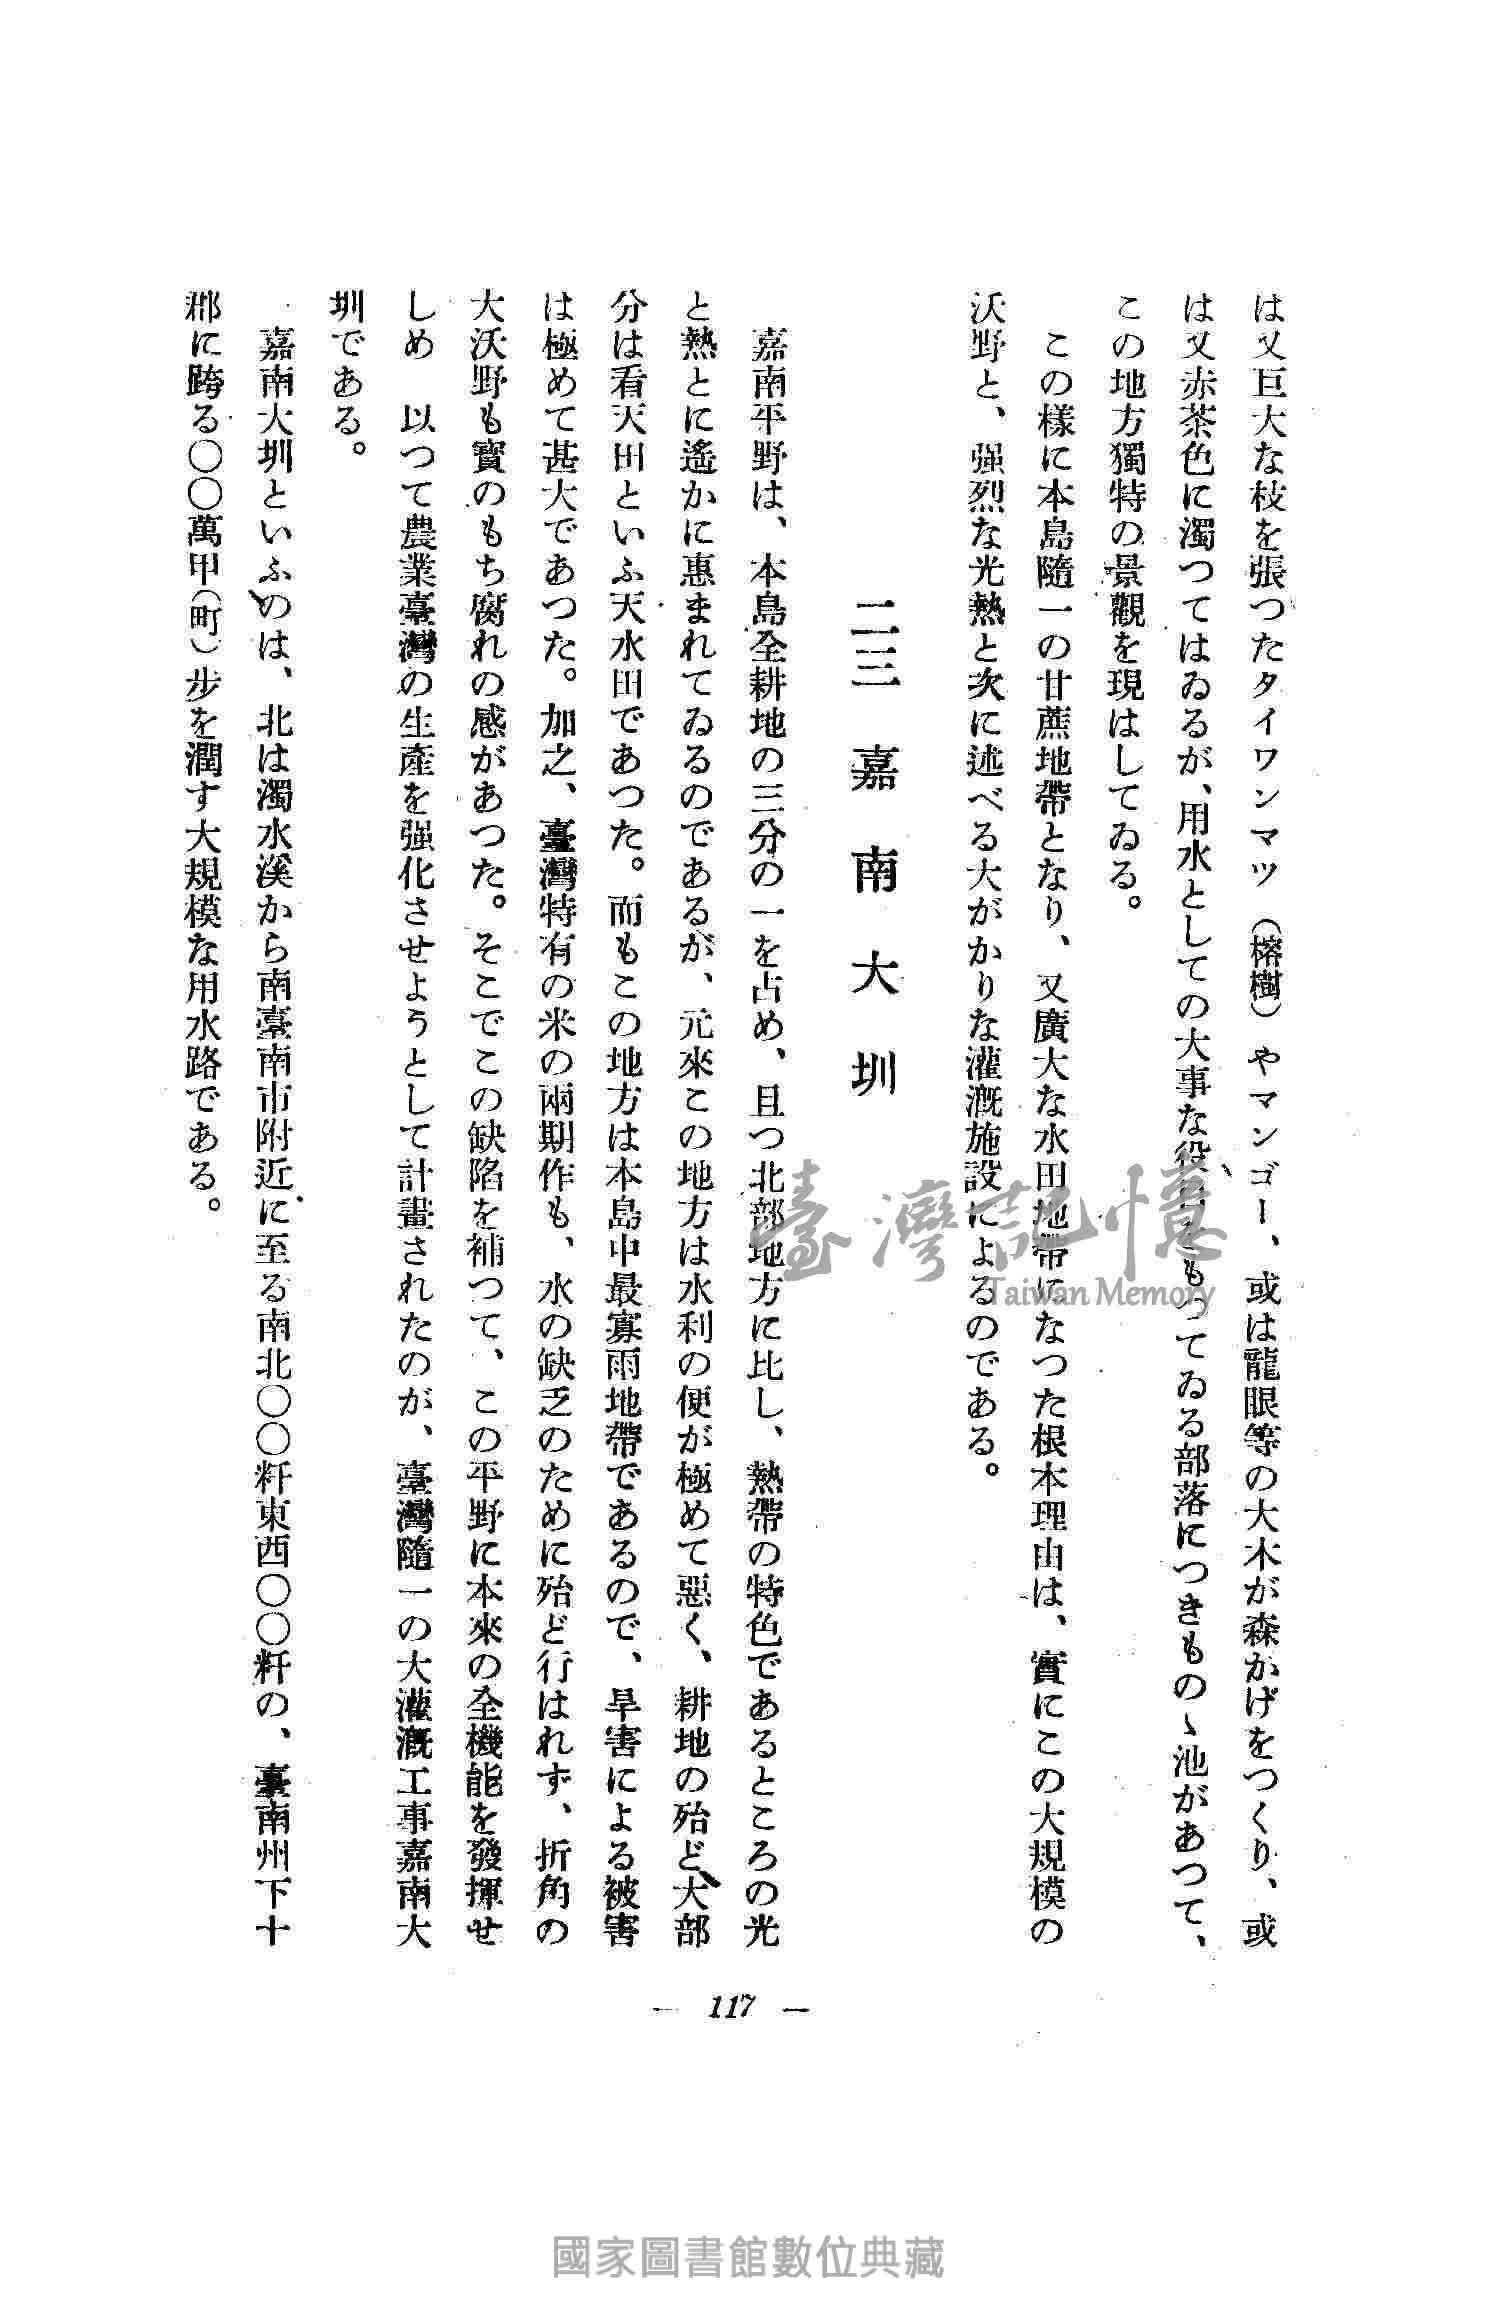 は又巨大な枝を張つたタイワンマツ（榕樹）やマンゴー、或は龍眼等の大木が森かげをつくり、或
は又赤茶色に濁つてはゐるが、用水としての大事な役目をもつてゐる部落につきものゝ池があつて、
この地方獨特の景觀を現はしてゐる。
この樣に本島隨一の甘蔗地帶となり、又廣大な水田地帶になつた根本理由は、實にこの大規模の
沃野と、强烈な光熱と次に述べる大がかりな灌漑施設によるのである。
二三　嘉南大圳
嘉南平野は、本島全耕地の三分の一を占め、且つ北部地方に比し、熱帶の特色であるところの光
と熱とに遙かに惠まれてゐるのであるが、元來この地方は水利の便が極めて惡く、耕地の殆ど大部
分は看天田といふ天水田であつた。而もこの地方は本島中最寡雨地帶であるので、旱害による被害
は極めて甚大であつた。加之、臺灣特有の米の兩期作も、水の缺乏のために殆ど行はれず、折角の
大沃野も寶のもち腐れの感があつた。そこでこの缺陷を補つて、この平野に本來の全機能を發揮せ
しめ　以つて農業臺灣の生產を强化させようとして計畫されたのが、臺灣隨一の大灌漑工事嘉南大
圳である。
嘉南大圳といふのは、北は濁水溪から南臺南市附近に至る南北〇〇粁東西〇〇粁の、臺南州下十
郡に跨る〇〇萬甲（町）步を潤す大規模な用水路である。
— 117 —
臺灣記憶
Taiwan Memory
國家圖書館數位典藏